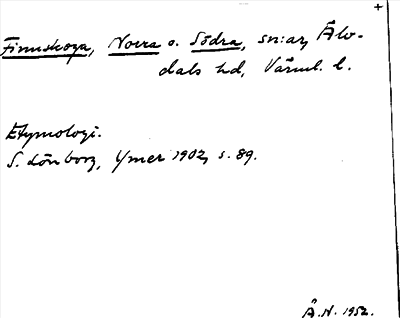 +
Finnskoga, Norra o. Södra, sn:ar, Älv-
dals hd, Värml. l.
Etymologi.
S. Lönborg, Ymer 1902, s. 89.
Å.H. 1952.